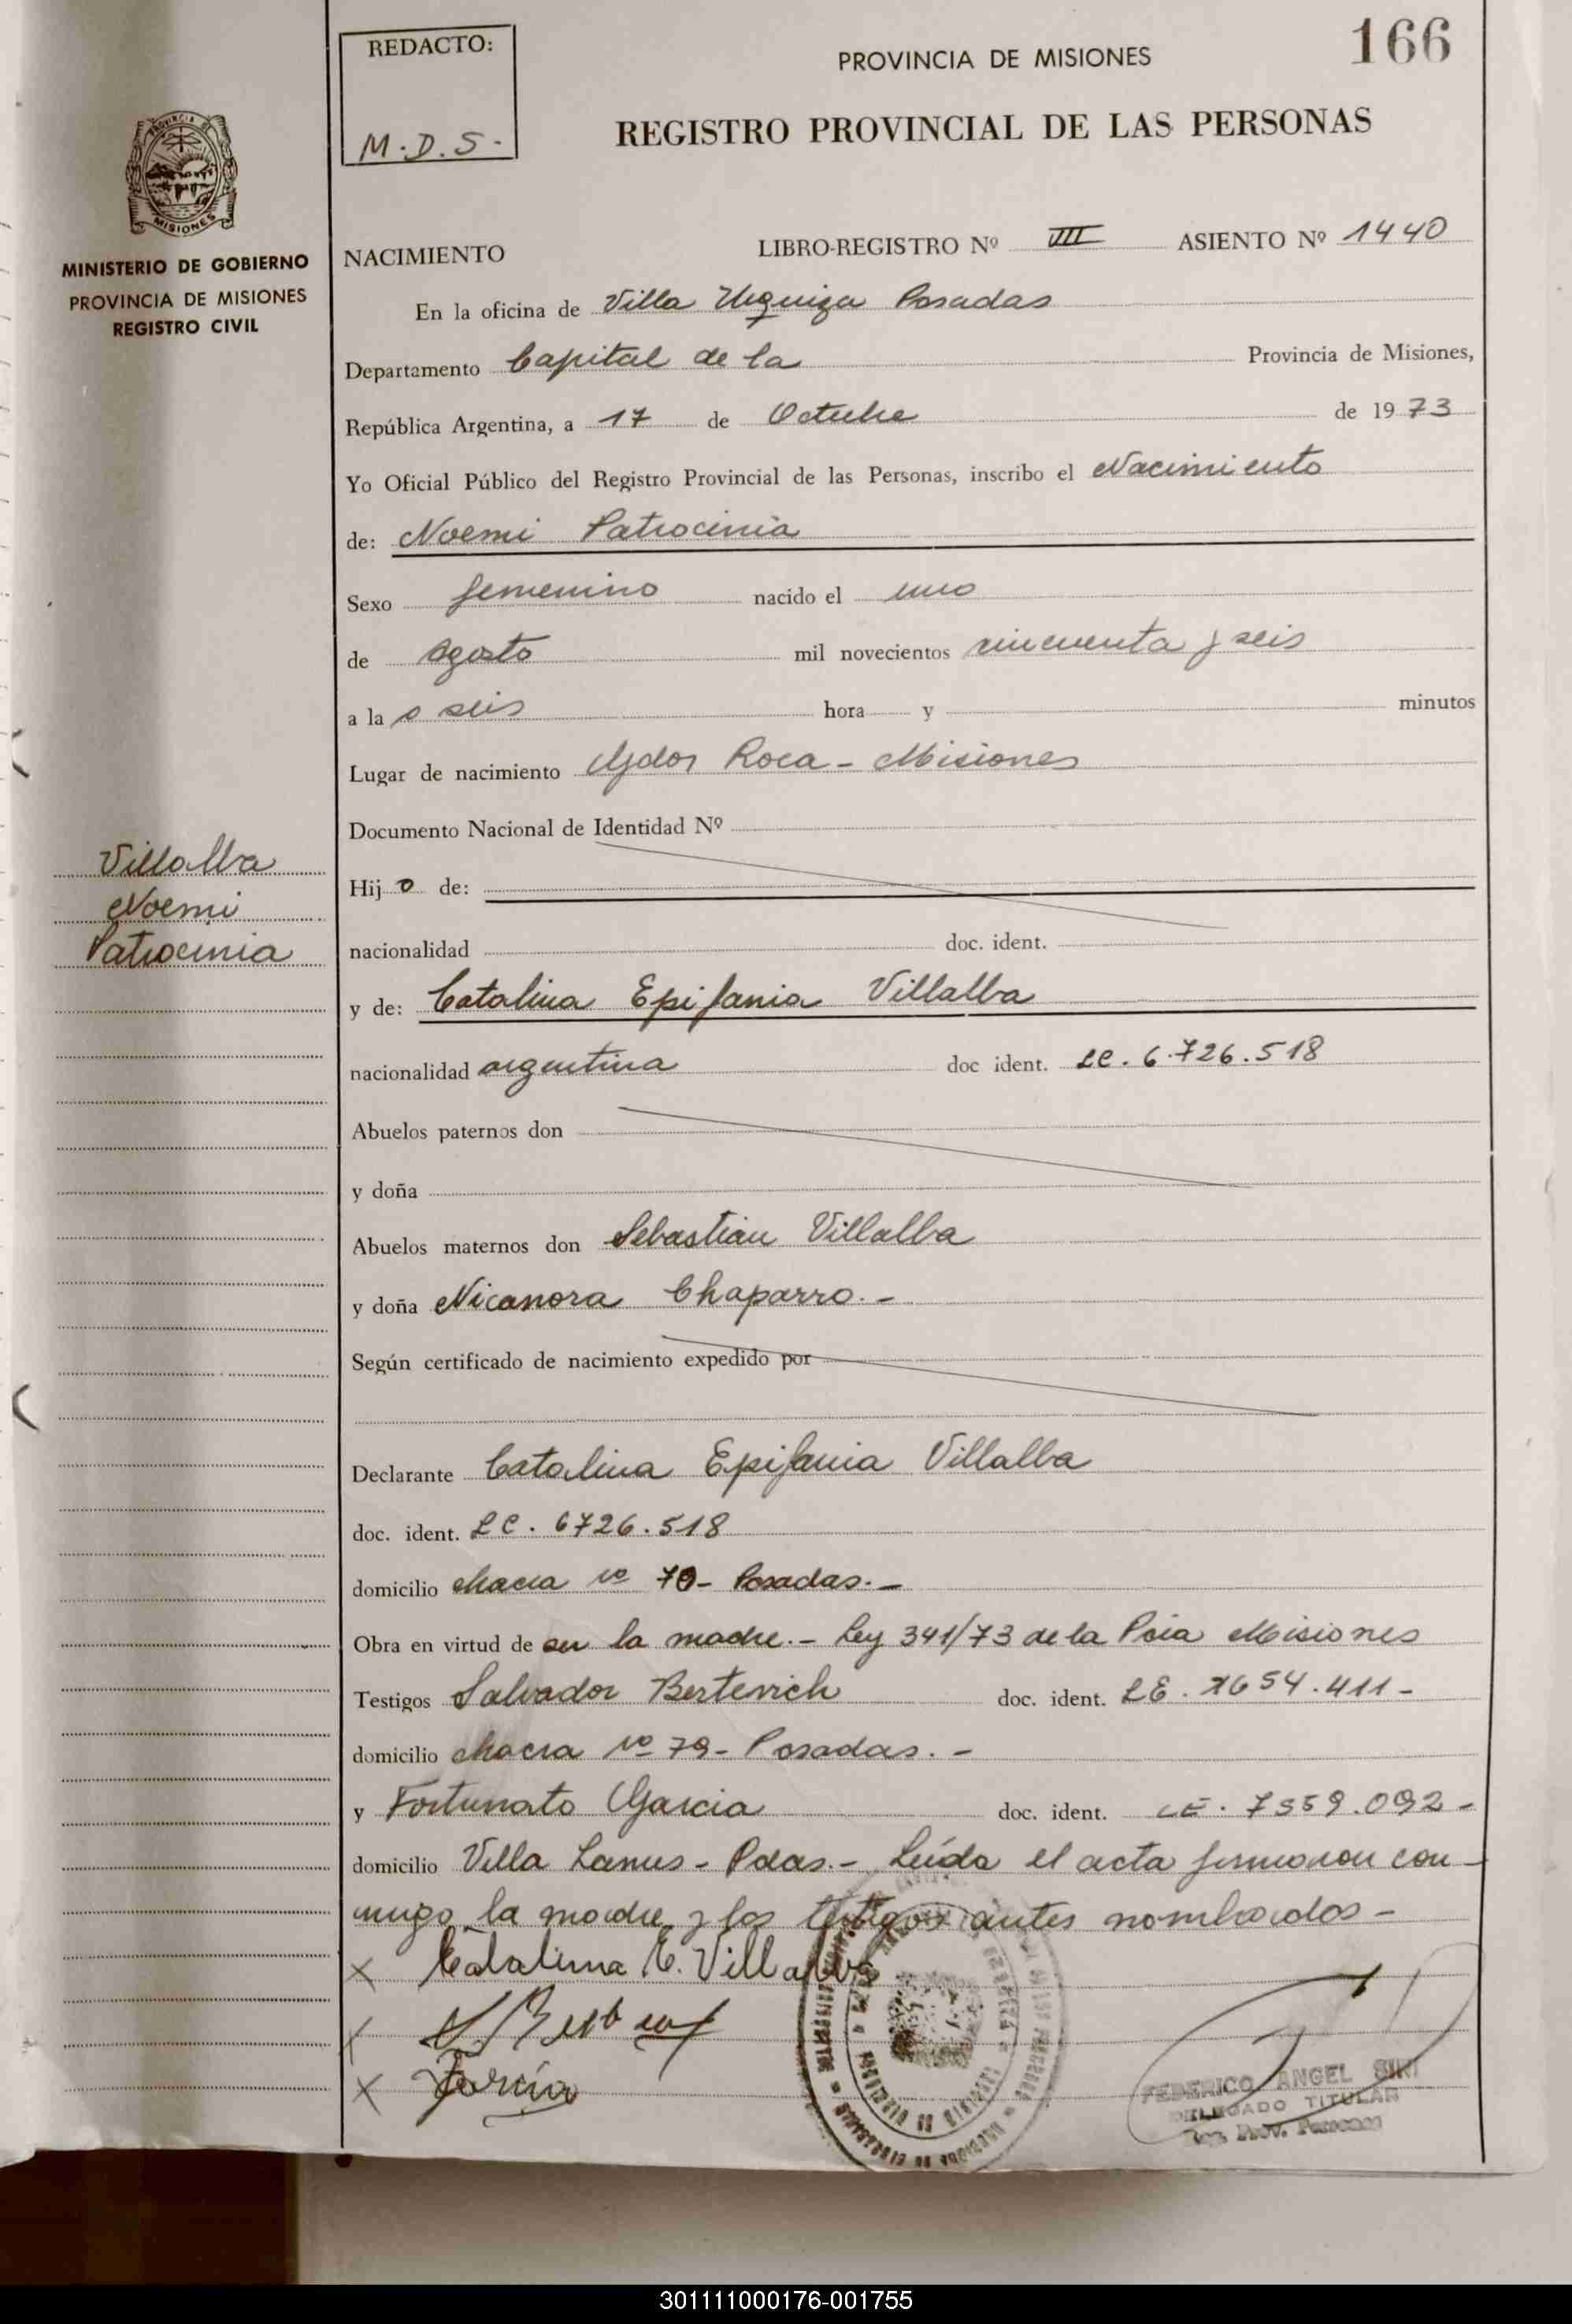 166
REDACTO:
M.D.S.-
PROVINCIA DE MISIONES
REGISTRO PROVINCIAL DE LAS PERSONAS
PROVINCIA DE
MISIONES
MINISTERIO DE GOBIERNO
PROVINCIA DE MISIONES
REGISTRO CIVIL
NACIMIENTO LIBRO-REGISTRO Nº VIII ASIENTO Nº 1440
En la oficina de Villa Urquiza Posadas
Departamento Capital de la Provincia de Misiones,
República Argentina, a 17 de Octubre de 1973
Yo Oficial Público del Registro Provincial de las Personas, inscribo el Nacimiento
de: Noemi Patrocinia
Sexo femenino nacido el uno
de agosto mil novecientos cincuenta y seis
a la s seis hora y minutos
Lugar de nacimiento Gdor Roca - Misiones
Documento Nacional de Identidad Nº
Villalba
Noemi
Patrocinia
Hijo de:
nacionalidad doc. ident.
y de: Catalina Epifania Villalba
nacionalidad argentina doc ident. LC. 6.726.518
Abuelos paternos don
y doña
Abuelos maternos don Sebastian Villalba
y doña Nicanora Chaparro.-
Según certificado de nacimiento expedido por
Declarante Catalina Epifania Villalba
doc. ident. LC. 6726.518
domicilio chacra nº Posadas.-
Obra en virtud de ser la madre.- Ley 341/73 de la Pcia Misiones
Testigos Salvador Bertenich doc. ident. LE. 654.411-
domicilio chacra nº 79- Posadas.-
y Fortunato Garcia doc. ident. LE. 7559.092-
domicilio Villa Lanus - Pdas.- Leída el acta firmaron con-
migo la madre y los testigos antes nombrados-
x Catalina E. Villalba
x
x Garcia
FEDERICO ANGEL SINI
DELEGADO TITULAR
Reg. Prov. Personas
301111000176-001755